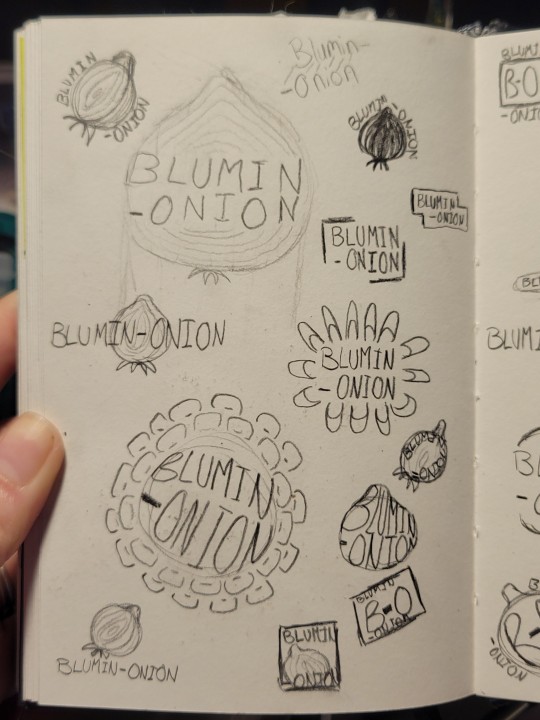 BLUMIN
-ONION
Blumin-
-Onion
BLUMIN-ONION
BLUMIN
-ONION
BLUMIN
-ONION
BLUMIN
-ONION
BLUMIN-ONION
BLUMIN
-ONION
BLUMIN
-ONION
BLUMIN
-ONION
BLUMIN
-ONION
BLUMIN
B-O
-ONION
BLUMIN
-ONION
BLUMIN-ONION
B-O
-ONION